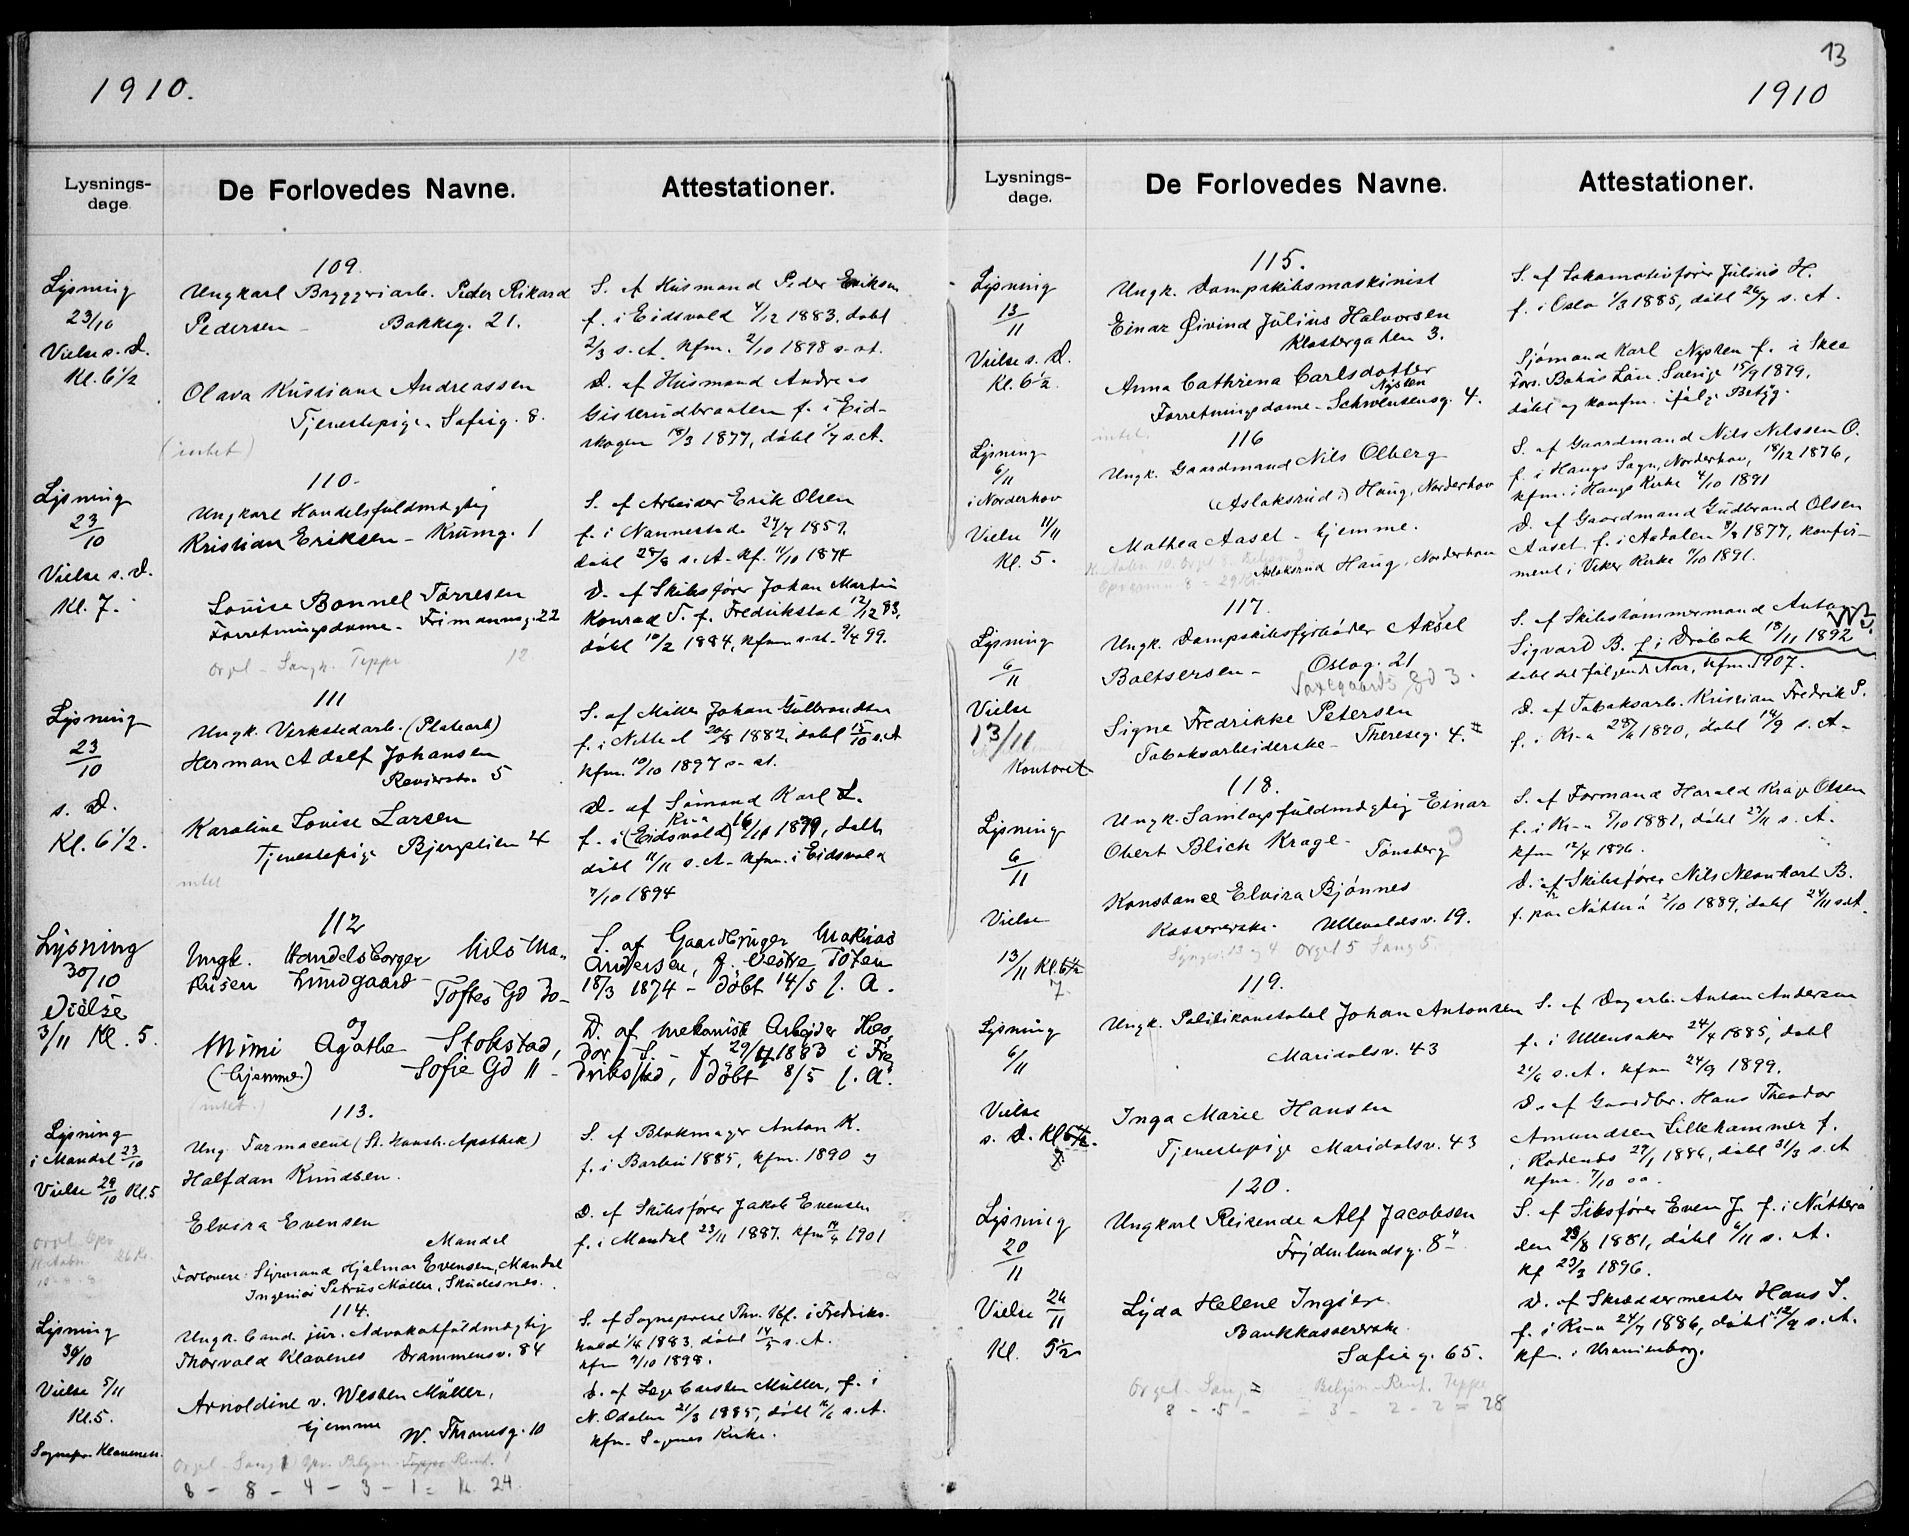 1910.
Lysnings-
dage
De Forlovedes Navne.
Attestationer.
109.
Lysning
23/10
Vielse s. D.
Kl. 6 1/2
Ungkarl Bryggeriarb. Peder Rikard
Pedersen - Bakkeg. 21.
Olava Kristiane Andreassen
Tjenestepige. Sofieg. 8.
(intet)
S. af Husmand Peder Eriksen
f. i Eidsvold 4/12 1883, døbt
2/3 s. A. kfm. 2/10 1898 s. st.
D. af Husmand Andreas
Gisterudbraaten f. i Eid-
skogen 18/3 1877, døbt 1/7 s. A.
110.
Lysning
23/10
Vielse s. D.
Kl. 7.
Ungkarl Handelsfuldmægtig
Kristian Eriksen - Krumg. 1
Louise Bonnel Tørresen
Forretningsdame - Frimannsg. 22
Orgel - Sang. Teppe 12
S. af Arbeider Erik Olsen
f. i Nannestad 27/7 1859,
døbt 28/8 s. A. kf. 11/10 1874
D. af Skibsfører Johan Martin
Konrad T. f. Fredrikstad 12/12 83,
døbt 10/2 1884, kfm. s. st. 9/4 99.
111
Lysning
23/10
s. D.
Kl. 6 1/2.
Ungk. Verkstedarb. (Platearb)
Herman Adolf Johansen
Revierstr. 5
Karoline Louise Larsen
Tjenestepige Bjergstien 4
intet
S. af Møller Johan Gulbrandsen
f. i Nittedal 20/8 1882, døbt 15/10 s. A
kfm. 10/10 1897 s. st.
D. af Sømand Karl L.
Kr-a
f. i (Eidsvold) 16/11 1879, døbt
døbt 11/11 s. A. kfm. i Eidsvold
7/10 1894
112
Lysning
30/10
Vielse
3/11 Kl. 5.
Ungk. Handelsborger Nils Ma-
thisen Lundgaard - Toftes Gd 30 -
og
Mimi Agathe Stokstad,
(hjemme.) Sofie Gd 11 -
(intet.)
S. af Gaardbruger Mathias
Andersen, f. Vestre Toten
18/3 1874 - døbt 14/5 s. A.
D. af mekanisk Arbejder Hies
dor S. - f 29/4 1883 i Fre
drikstad, døbt 8/5 s. A.
113.
Lysning
i Mandal 23/10
Vielse 29/10 Kl. 5
Ung. Farmaceut (St. Hansh. Apothek)
Halfdan Knudsen.
Elvira Evensen
Mandal
Forlovere: Styrmand Hjalmar Evensen, Mandal
Ingeniør Petrus Møller, Skudesnes.
S. af Blokmager Anton K.
f. i Barbu 1885, kfm. 1890 og
D. af Skibsfører Jakob Evensen
f. i Mandal 23/11 1887. kfm 14/4 1901
114.
Lysning
30/10
Vielse 5/11
Kl. 5.
Sognepr. Klavenes.
Ungk. Cand. jur. Advokatfuldmægtig
Thorvald Klavenes Drammensv. 84
Arnoldine v. Westen Müller,
hjemme W. Thranesg. 10
8 - 8 - 4 - 3 - 1 = Kr. 24.
S. af Sogneprest Thv. Kl. f. i Fredriks-
hald 1/4 1883, døbt 14/5 s. A.
kfm 9/10 1898.
D. af Læge Carsten Müller, f. i
N. Odalen 21/3 1885, døbt s. A.
kfm. Sagnes Kirke.
13
1910
Lysnings-
dage.
De Forlovedes Navne.
Attestationer.
115.
Lysning
13/11
Vielse s. D.
Kl. 6 1/2.
Ungk. Dampskibsmaskinist
Einar Øivind Julius Halvorsen
Klostergaten 3.
Anna Cathrina Carlsdotter
Nysten
Forretningsdame - Schwensensg. 4.
intet.
S. af Lokomotivfører Julius H.
f. i Oslo 1/3 1885, døbt 26/7 s. A.
Sjømand Karl Nysten f. i Skee
Fors. Bohus Län. Sverige 15/9 1879,
døbt og konfm. ifølge Betyg.
116
Lysning
6/11
i Norderhov
Vielse 11/11
Kl. 5.
Ungk. Gaardmand Nils Olberg
(Aslaksrud;) Haug, Norderhov
Mathea Aasel - hjemme.
Aslaksrud Haug, Norderhov
S. af Gaardmand Nils Nilssen O.
f. i Haugs Sogn, Norderhov, 18/12 1876,
kfm. i Haugs Kirke 4/10 1891
D. af Gaardmand Gudbrand Olsen
Aasel f. i Aadalen 9/8 1877, konfir-
meret i Viker Kirke 9/10 1891.
117.
Lysning
6/11
Vielse
13/11
Kontoret
Ungk. Dampskibsfyrbøder Aksel
Baltsersen - Oslog. 21
Signe Fredrikke Petersen
Tobaksarbeiderske - Thereseg. 4.
S. af Skibstømmermand Anton
Sigvard B. f. i Drøbak 18/11 1892
døbt det følgende Aar, kfm. 1907.
D. af Tobaksarb. Kristian Fredrik P.
f. i Kr-a 28/6 1890, døbt 14/9 s. A.
118.
Lysning
6/11
Vielse
13/11 Kl. 6 1/2
7.
Ungk. Samlagsfuldmægtig Einar
Obert Blich Krage - Tønsberg
Konstance Elvira Bjønnes
Kassererske. Ullevoldsv. 19.
Synges: 13 og 4 Orgel 5 Sang 5.
S. af Formand Harald Krage Olsen
f. i Kr-a 5/10 1881, døbt 27/11 s. A.
kfm 12/4 1896.
D. af Skibsfører Nils Neonhart B.
f. paa Nøtterø 2/10 1889, døbt 24/11 s. A.
119.
Lysning
6/11
Vielse
s. D. Kl. 6 1/2.
7
Ungk. Politikonstabel Johan Antonsen
Maridalsv. 43
Inga Marie Hansen
Tjenestepige Maridalsv. 43
S. af Dagarb. Anton Andersen
f. i Ullensaker 24/4 1885, døbt
21/6 s. A. kfm 24/9 1899.
D. af Gaardbr. Hans Theodor
Amundsen Lillehammer f.
i Rødenes 29/1 1886, døbt 31/3 s. A
kfm. 7/10 00.
120.
Lysning
20/11
Vielse 26/11
Kl. 5 1/2
Ungkarl Reisende Alf Jacobsen
Frydenlundsg. 8
Lyda Helene Ingier
Bankkassererske.
Sofieg. 65.
8 - 5 - = 3 - 2 - 2 = 28
S. af Skibsfører Even J. f. i Nøtterø
den 23/8 1881, døbt 6/11 s. A.
kf 29/3 1896.
D. af Skræddermester Hans I.
f. i Kr-a 24/7 1886, døbt 12/9 s. A.
kf. i Uranienborg.